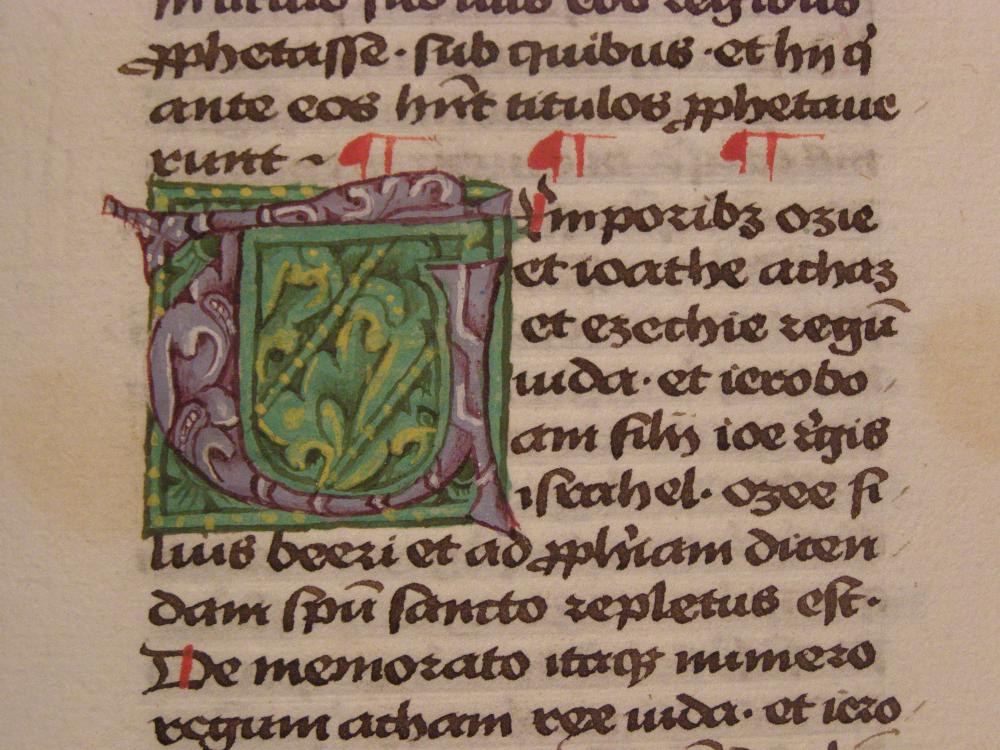 in titulo suo illis eos regibus
ꝓphetasse · sub quibus · et hij q͛
ante eos hn̄t titulos ꝓphetaue
runt ~ ¶ ¶ ¶
Tꝑmporibꝫ ozie
et ioathe achaz
et ezechie regū
iuda · et ierobo
am filij ioe r͛gis
israhel · ozee fi
lius beeri et ad ꝓph̓iam dicen
dam spū sancto repletus est ·
De memorato itaqꝫ numero
regum acham rex iuda · et iero